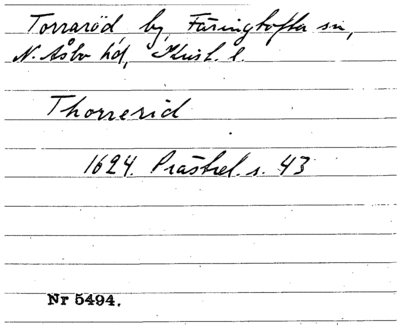 Torraröd, by, Färingtofta sn,
N. Åsbo hd, Krist. l.
Thorrerid
1624. Prästrel. s. 43
Nr 5494.